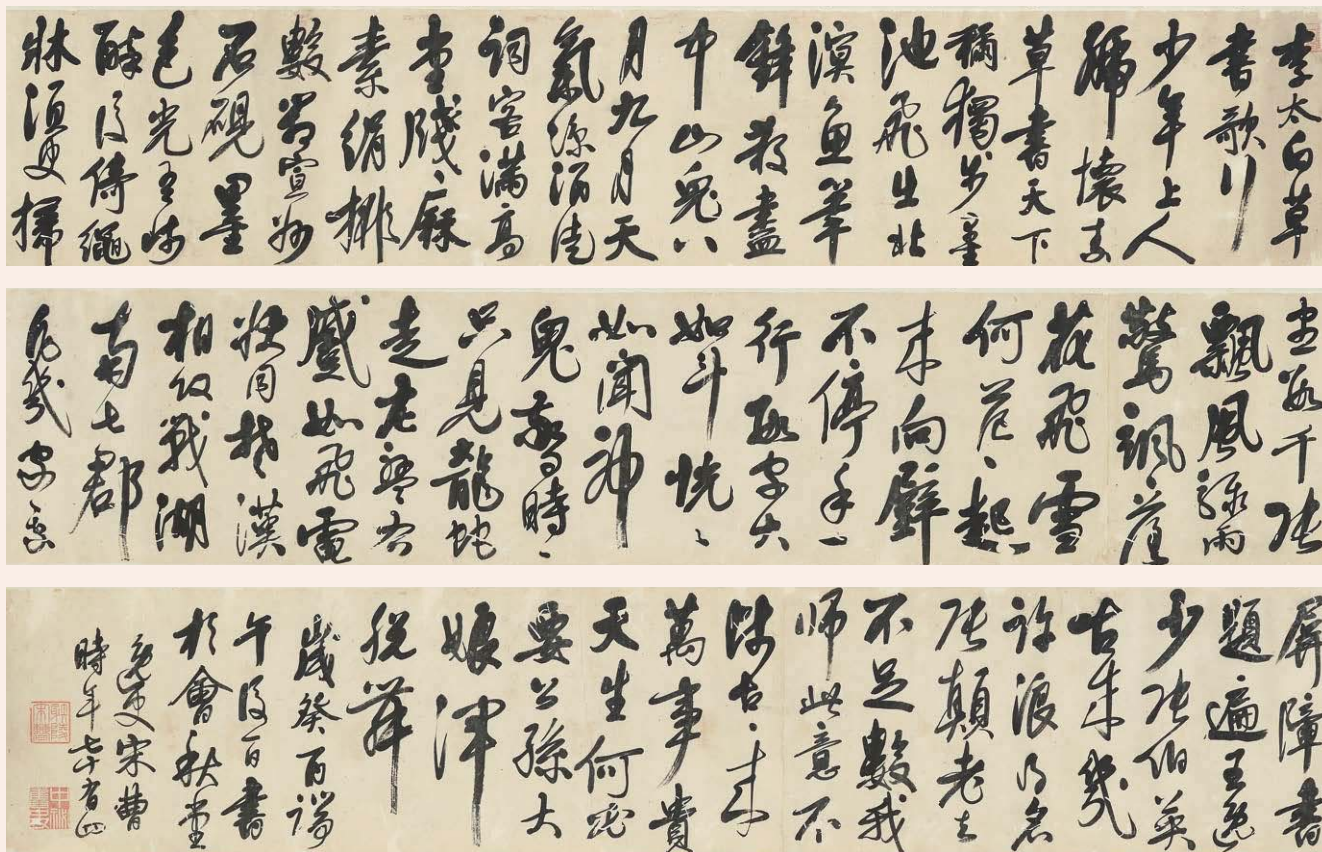 李太白草
書歌行
少年上人
號懷素
草書天下
稱獨步墨
池飛出北
溟魚筆
鋒殺盡
中山兔八
月九月天
氣涼酒徒
詞客滿高
堂牋〻麻
素絹排
數箱宣州
石硯墨
色光吾師
醉後倚繩
牀須臾掃
盡數千張
飄風驟雨
驚颯〻落
花飛雪
何茫〻起
來向壁
不停手一
行數字大
如斗恍〻
如聞神
鬼驚時〻
只見龍蛇
走左盤右
蹙如飛電
狀同楚漢
相攻戰湖
南七郡
凡幾家〻
屏障書
題遍王逸
少張伯英
古來幾
許浪得名
張顛老去
不足數我
師此意不
師古〻來
萬事貴
天生何必
要公孫大
娘渾
脫舞
歲癸酉端
午後一日書
於會秋堂
逸史宋曹
時年七十有四